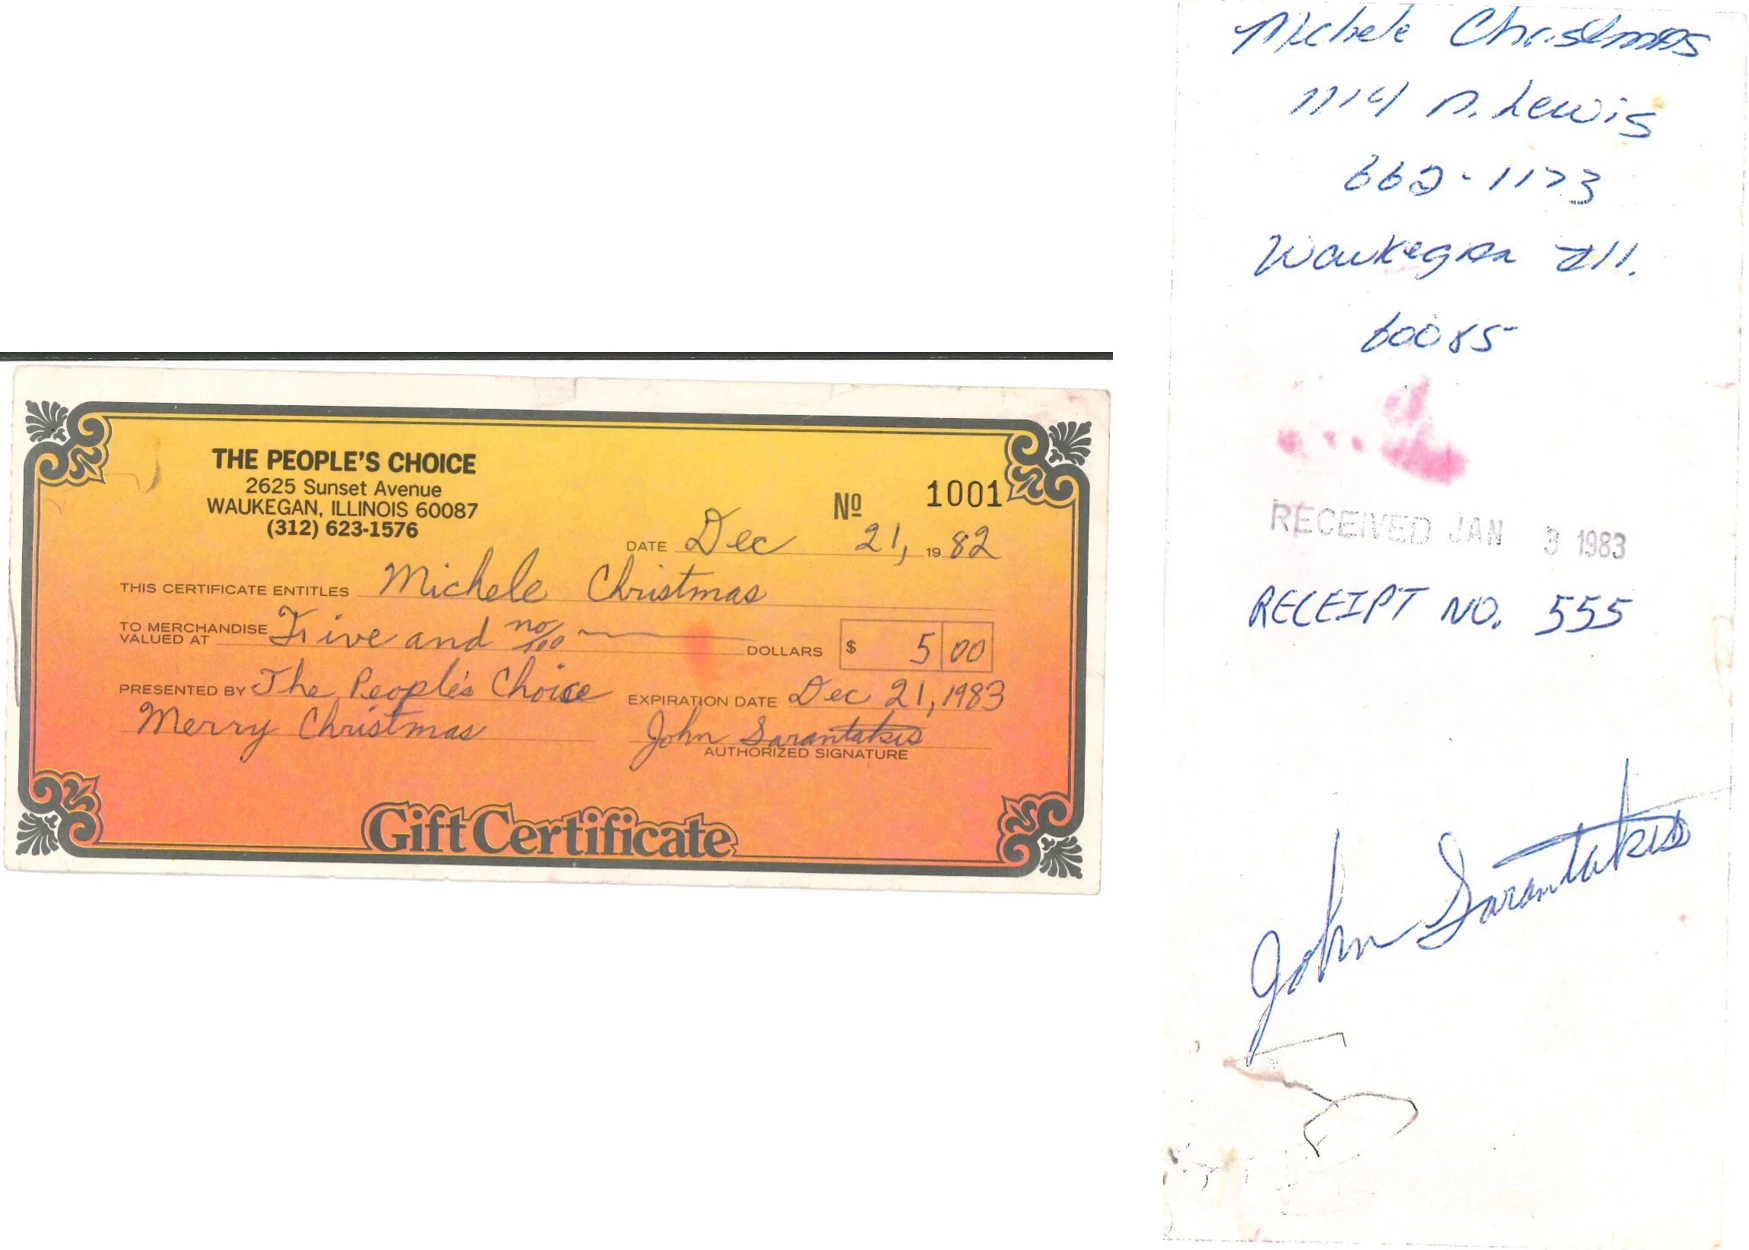 THE PEOPLE'S CHOICE
2625 Sunset Avenue
WAUKEGAN, ILLINOIS 60087
(312) 623-1576
Nº 1001
DATE Dec 21, 1982
THIS CERTIFICATE ENTITLES Michele Christmas
TO MERCHANDISE VALUED AT Five and no/100 DOLLARS $ 5 00
PRESENTED BY The People's Choice EXPIRATION DATE Dec 21, 1983
Merry Christmas John Sarantakis
AUTHORIZED SIGNATURE
Gift Certificate
Michele Christmas
1114 N. Lewis
662-1173
Waukegan Ill.
60085
RECEIVED JAN 3 1983
RECEIPT NO. 555
John Sarantakis